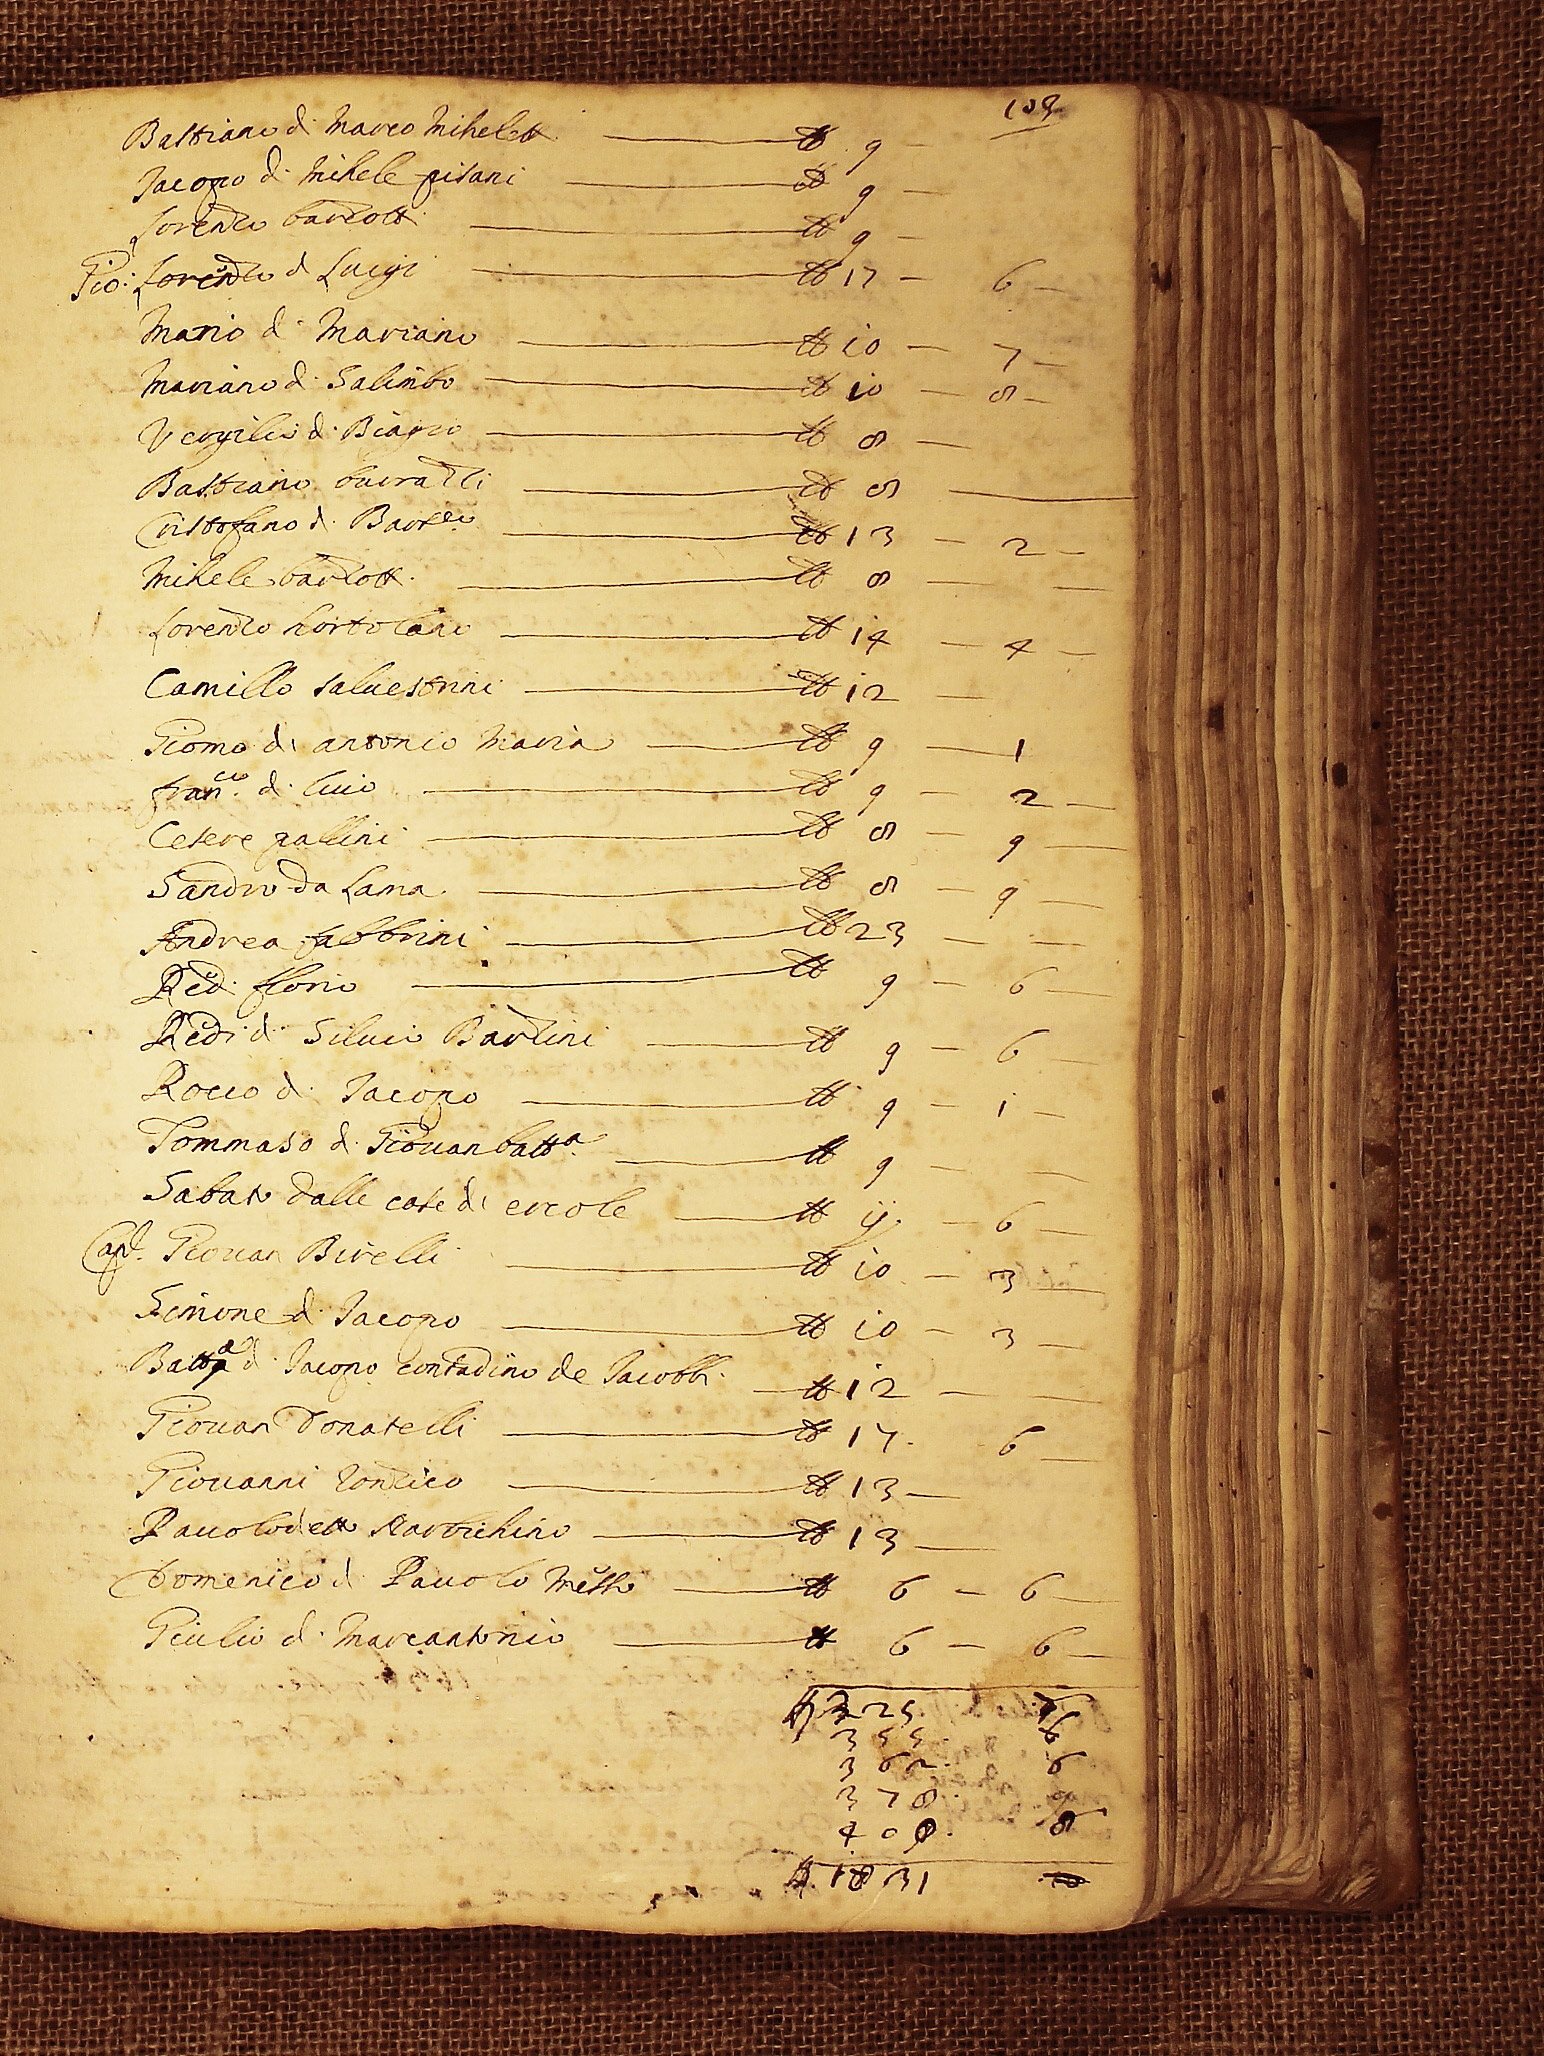 109
Bastiano d. Marco Mihelett. ₶ 9 —
Jacopo d. Mihele pisani ₶ 9 —
Lorenzo barzott. ₶ 9 —
Gio: Lorenzo d Luigi ₶ 17 — 6 —
Mario d. Mariano ₶ 10 — 7 —
Mariano d. Salimbo ₶ 10 — 8 —
Vergilio d. Biagio ₶ 8 —
Bastiano burazzi ₶ 8 —
Cristofano d. Bart.eo ₶ 13 — 2 —
Mihele barzott. ₶ 8 — —
Lorenzo hortolano ₶ 14 — 4 —
Camillo saluestrini ₶ 12 —
Giomo di antonio Maria ₶ 9 — 1
fran.co d. liuio ₶ 9 — 2 —
Cesere pallini ₶ 8 — 9 —
Sandro da Lama ₶ 8 — 9 —
Andrea fabbrini ₶ 23 — —
Red. florio ₶ 9 — 6 —
Redi d. Siluio Barzini ₶ 9 — 6 —
Rocco d. Jacopo ₶ 9 — 1 —
Tommaso d. Giouanbatt.a ₶ 9 — —
Sabato dalle case di ercole ₶ ij. — 6 —
Cap. Giouan Birelli ₶ 10 — 3 —
Simone d. Jacopo ₶ 10 — 3 —
Batt.a d. Jacopo contadino de Jacobbi. ₶ 12 — —
Giouan Donatelli ₶ 17. 6 —
Giouanni ₶ 13 —
Pauolo detto ₶ 13 —
Domenico d. Pauolo ₶ 6 — 6 —
Giulio d. Marcantonio ₶ 6 — 6 —
₶ 325.
355. 6
362. 6
378.
409. 8
₶ 1831